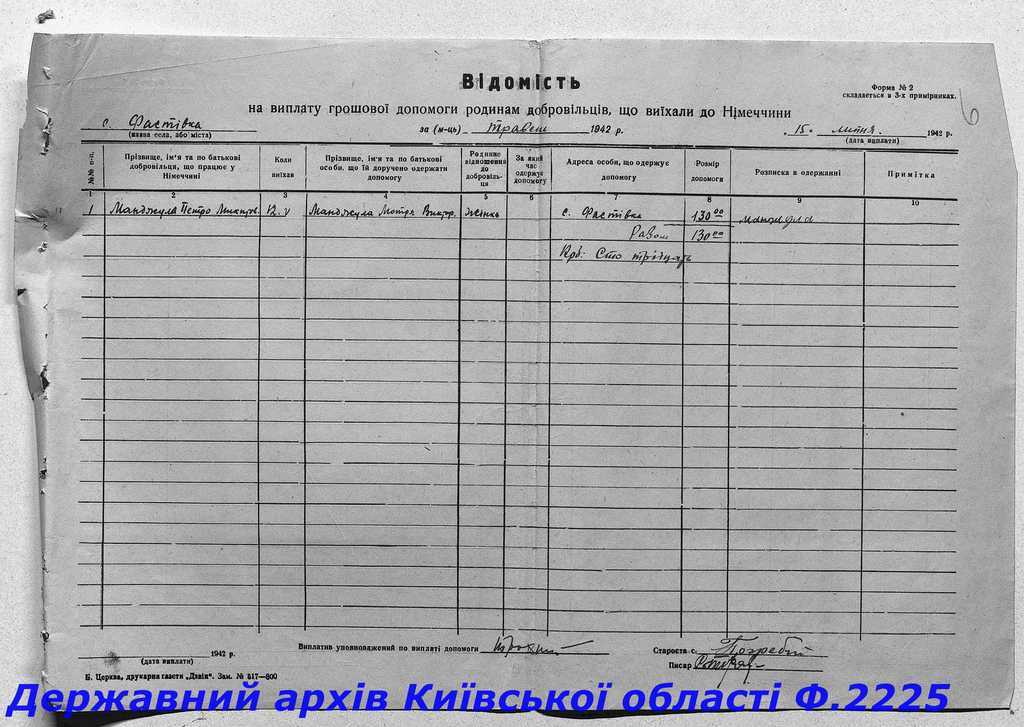 Відомість
Форма № 2
складається в 3-х примірниках.
6
на виплату грошової допомоги родинам добровільців, що виїхали до Німеччини
с. Фастівка
(назва села, або міста)
за (м-ць) травень 1942 р.
„ 15 „ липня 1942 р.
(дата виплати)
№№ п-п.
Прізвище, ім'я та по батькові добровільця, що працює у Німеччині
Коли виїхав
Прізвище, ім'я та по батькові особи, що їй доручено одержати допомогу
Родинне відношення до добровільця
За який час одержує допомогу
Адреса особи, що одержує допомогу
Розмір допомоги
Розписка в одержанні
Примітка
1 2 3 4 5 6 7 8 9 10
1 Манджула Петро 12.V Манджула Мотря Виктор. жінка с. Фастівка 130 00 манджула
Разом 130 00
Крб: Сто тридцять
1942 р.
(дата виплати)
Виплатив уповноважений по виплаті допомоги
Староста с. Погребній
Писар
Б. Церква, друкарня газети „Дзвін". Зам. № 517—800
Державний архів Київської області Ф.2225